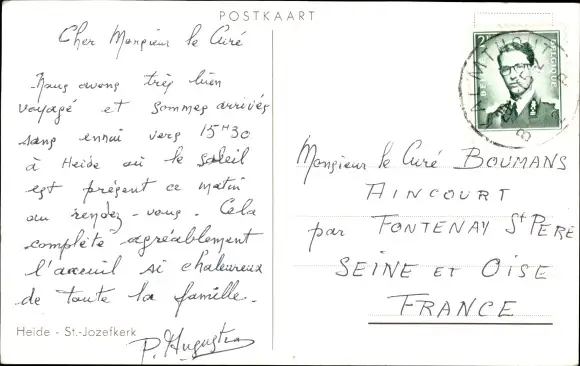 POSTKAART
Cher Monsieur le Curé
Nous avons très bien
voyagé et sommes arrivés
sans ennui vers 15H30
à Heide où le soleil
est présent ce matin
au rendez-vous. Cela
complète agréablement
l'accueil si chaleureux
de toute la famille.
P. Augustin
Heide - St.-Jozefkerk
BELGIQUE
KALMTHOUT
Monsieur le Curé BOUMANS
AINCOURT
par FONTENAY St PERE
SEINE ET OISE
FRANCE